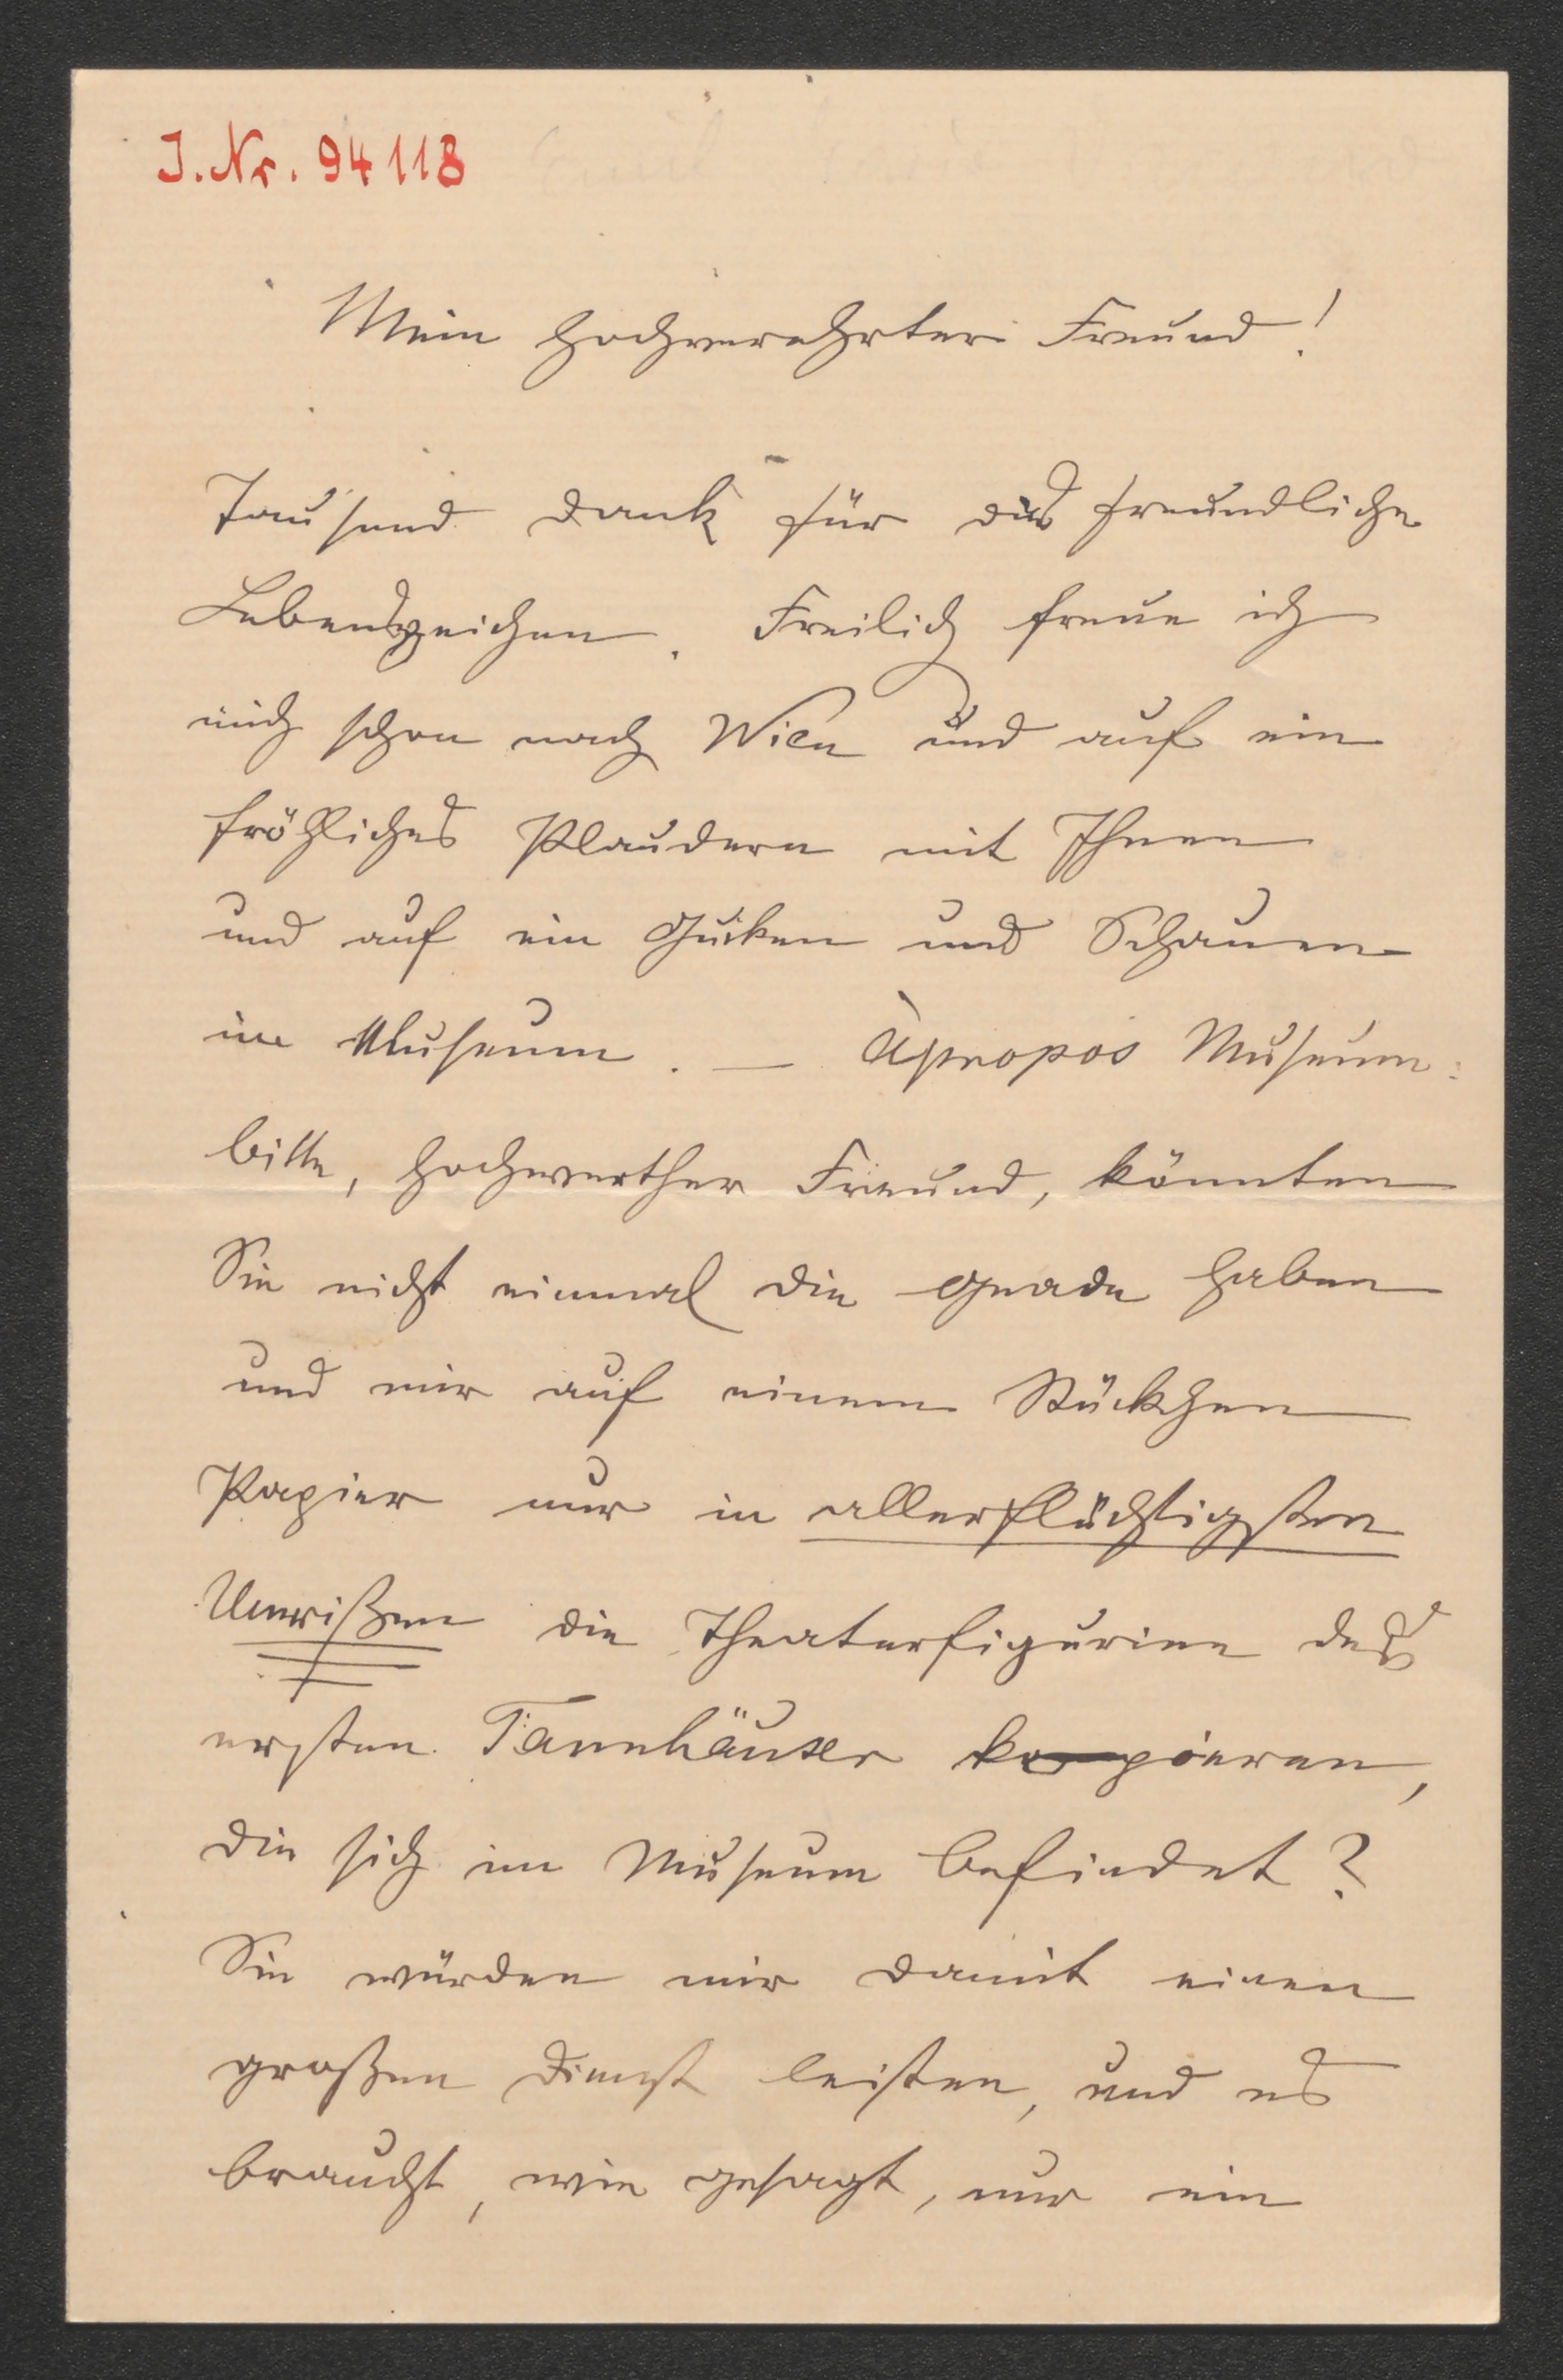 J. Nr. 94118
Mein hochverehrter Freund!
Tausend Dank für das freundliche
Lebenszeichen. Freilich freue ich
mich schon nach Wien und auf ein
fröhliches Plaudern mit Ihnen
und auf ein Gucken und Schauen
im Museum. — Àpropos Museum:
bitte, hochwerther Freund, könnten
Sie nicht einmal die Gnade haben
und mir auf einem Stückchen
Papier nur in allerflüchtigsten
Umrißen die Theaterfigurine des
ersten Tannhäuser kopieren,
die sich im Museum befindet?
Sie würden mir damit einen
großen Dienst leisten, und es
braucht, wie gesagt, nur ein